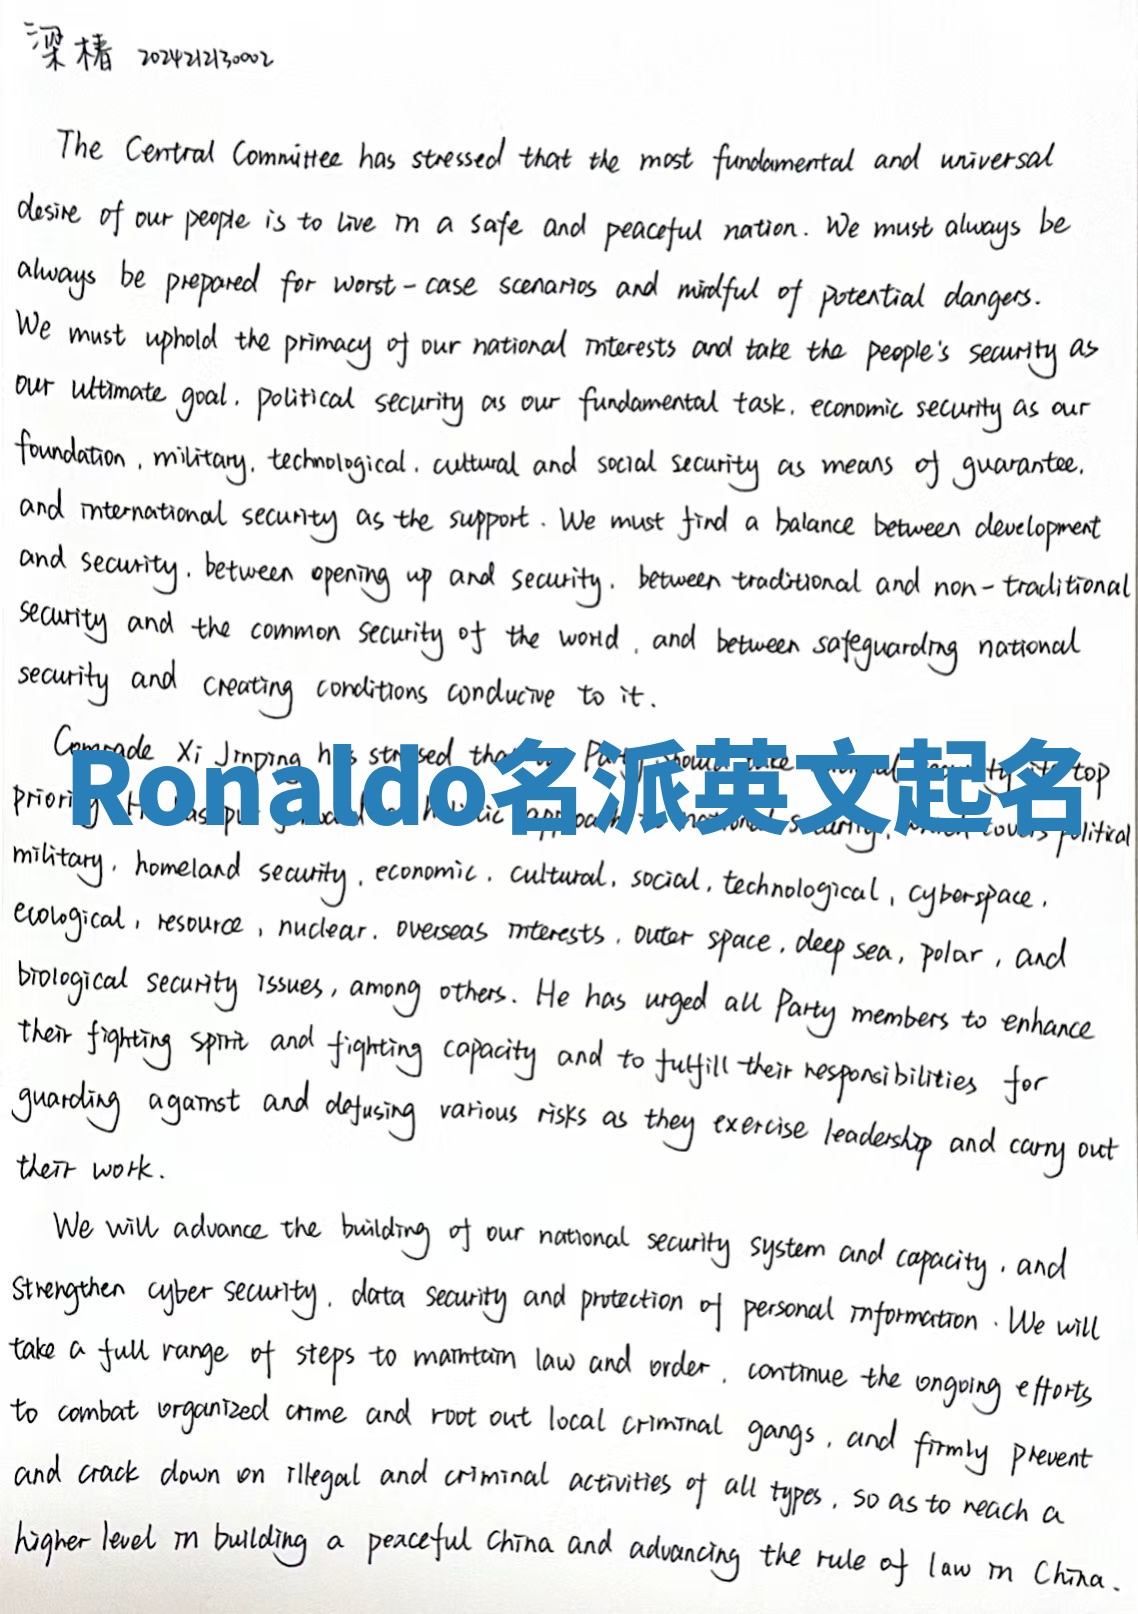 梁椿 2024212130002
The Central Committee has stressed that the most fundamental and universal
desire of our people is to live in a safe and peaceful nation. We must always be
always be prepared for worst-case scenarios and mindful of potential dangers.
We must uphold the primacy of our national interests and take the people's security as
our ultimate goal, political security as our fundamental task, economic security as our
foundation, military, technological, cultural and social security as means of guarantee,
and international security as the support. We must find a balance between development
and security, between opening up and security, between traditional and non-traditional
security and the common security of the world, and between safeguarding national
security and creating conditions conducive to it.
Comrade Xi Jinping has stressed Party should top
Ronaldo名派英文起名
priority political
military, homeland security, economic, cultural, social, technological, cyberspace,
ecological, resource, nuclear, overseas interests, outer space, deep sea, polar, and
biological security issues, among others. He has urged all Party members to enhance
their fighting spirit and fighting capacity and to fulfill their responsibilities for
guarding against and defusing various risks as they exercise leadership and carry out
their work.
We will advance the building of our national security system and capacity, and
strengthen cyber security, data security and protection of personal information. We will
take a full range of steps to maintain law and order, continue the ongoing efforts
to combat organized crime and root out local criminal gangs, and firmly prevent
and crack down on illegal and criminal activities of all types, so as to reach a
higher level in building a peaceful China and advancing the rule of law in China.